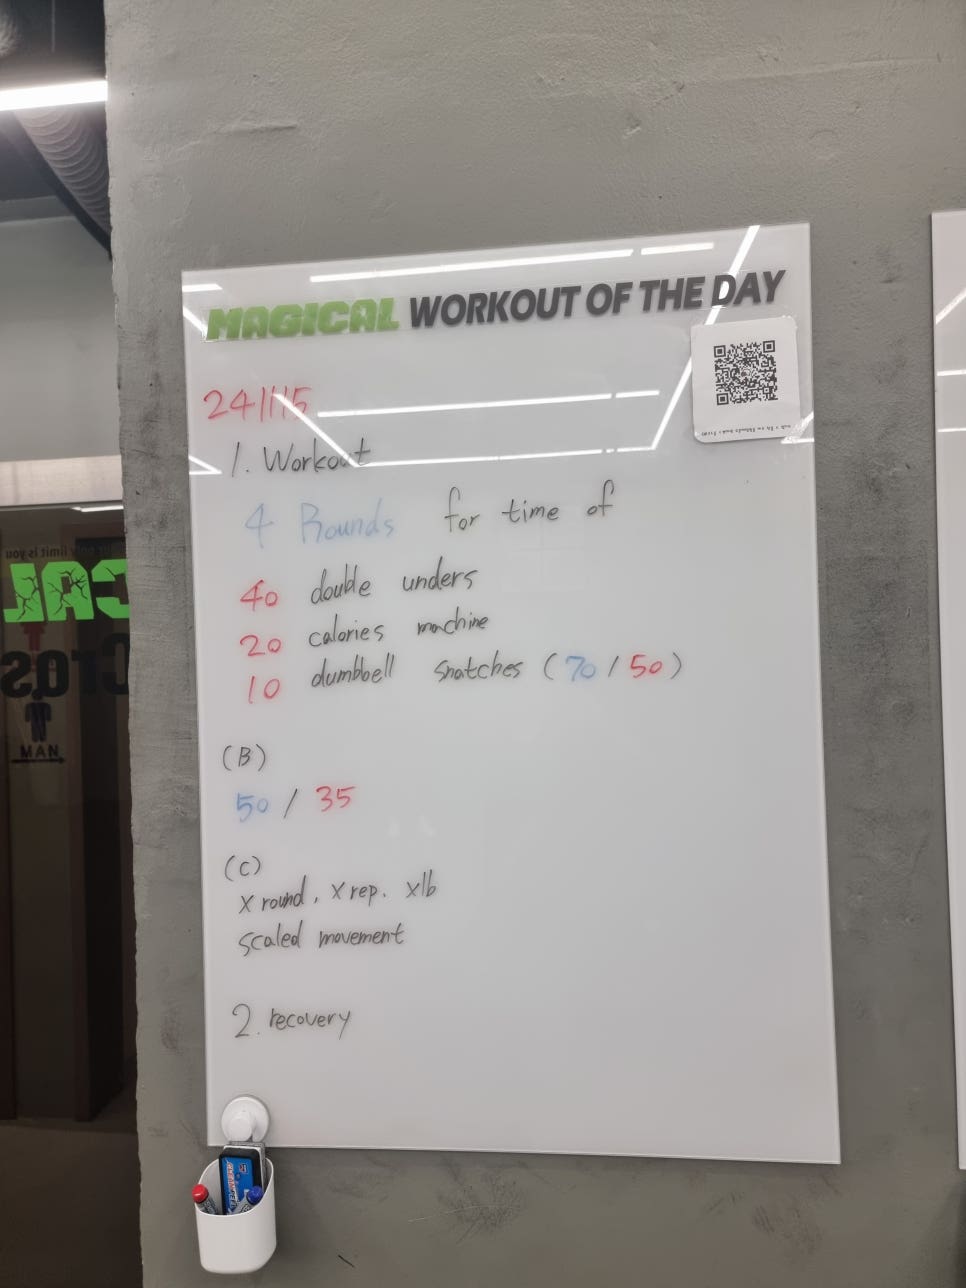 MAGICAL WORKOUT OF THE DAY
241115
1. Workout
4 Rounds for time of
40 double unders
20 calories machine
10 dumbbell snatches (70/50)
(B)
50 / 35
(C)
x round, x rep. xlb
scaled movement
2. recovery
only limit is you
CAL
Cros
MAN